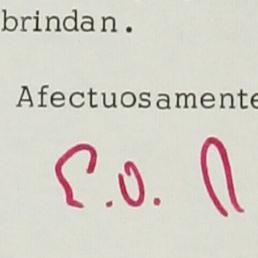 brindan.
Afectuosamente